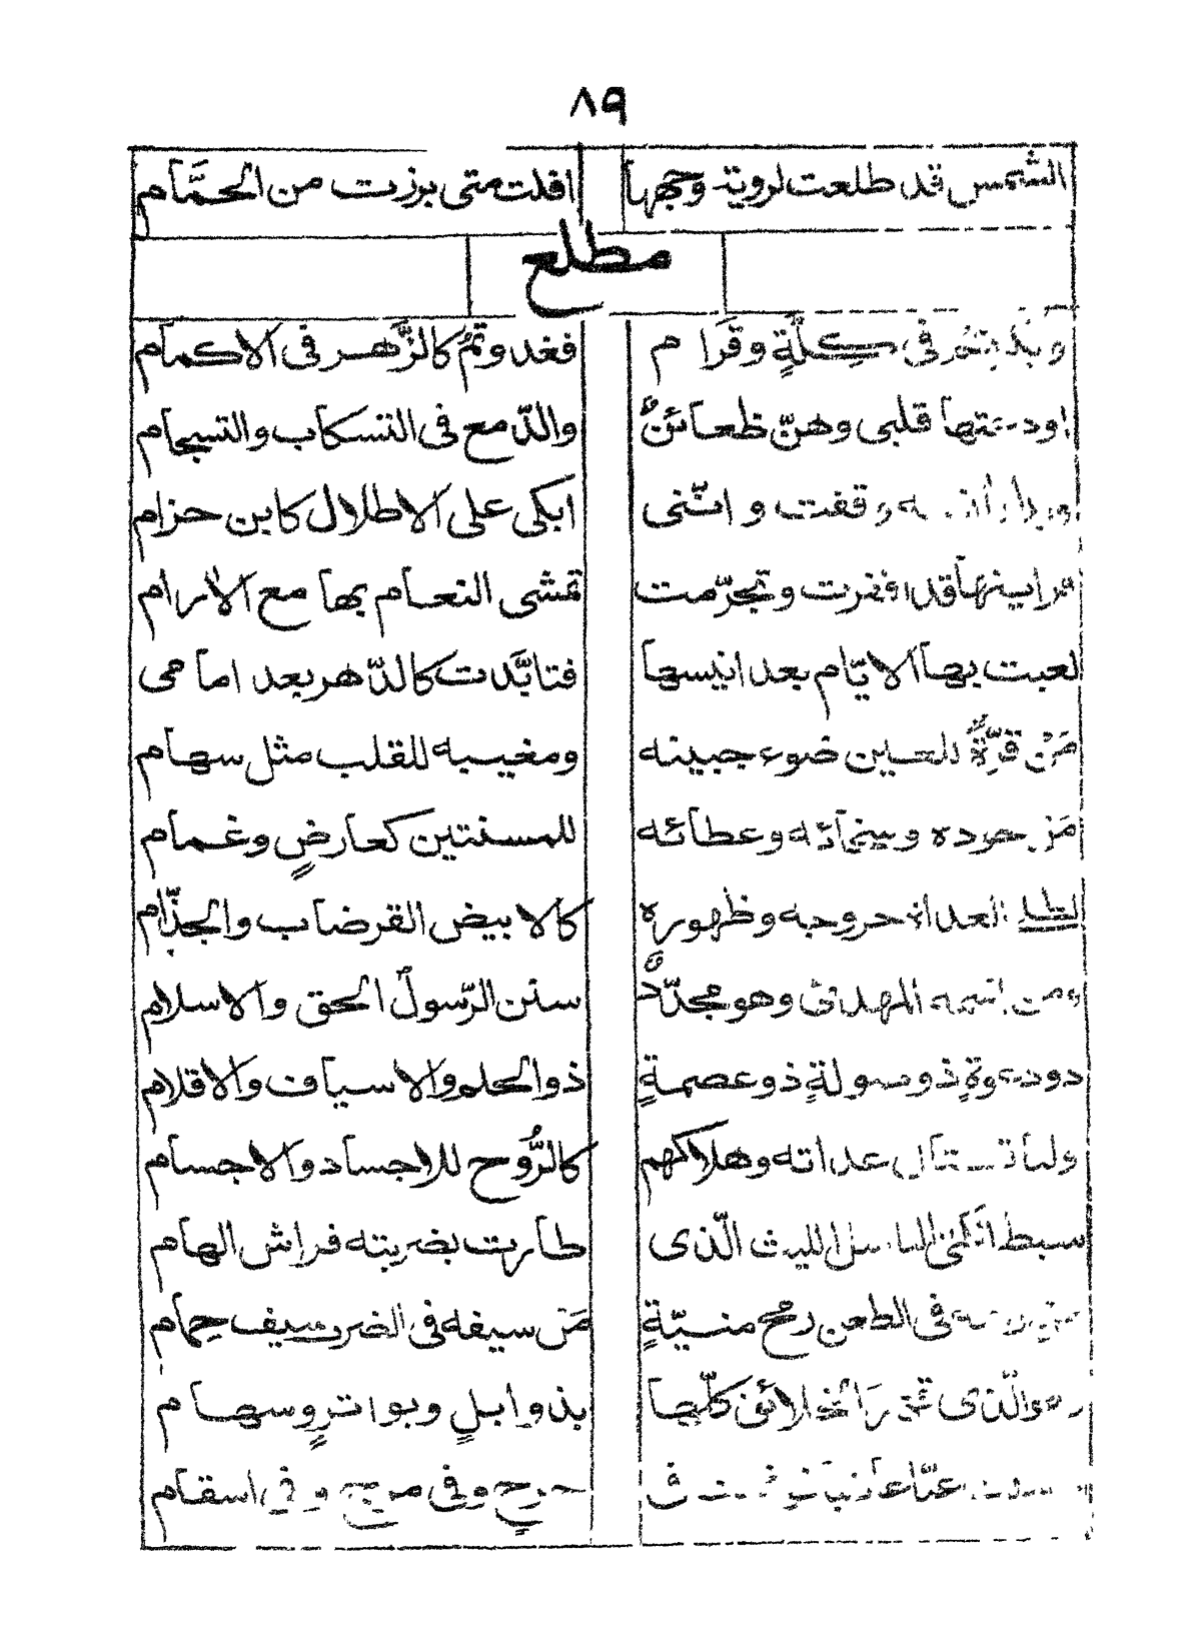 ٨٩
الشمس قد طلعت لروية وجهها افلت متى برزت من الحمَّام
مطلع
فى كِلَّةٍ وقَرَام فغدوتمُ كالزَّهر فى الاكمام
قلبى وهنّ ظعائنٌ والدّمع فى التسكاب والتسجام
وقفت و انّنى ابكى على الاطلال كابن حزام
قد اقفرت وتجرّمت تمشى النعام بها مع الارام
لعبت بها الايّام بعد انيسها فتابّدت كالدّهر بعد امامى
مَن قرّةٌ للعين ضوء جبينه ومغيبه للقلب مثل سهام
مَن جوده وعطائه للمسنتين كعارضٍ وغمام
العداة خروجه وظهوره كالابيض القرضاب والجذّام
ومن اسمه المهدىّ وهو مجدّدٌ سنن الرّسول الحق والاسلام
ذو دعوةٍ ذو صولةٍ ذو عصمةٍ ذوالحلم والاسياف والاقلام
عداته وهلاكهم كالرُّوح للاجساد والاجسام
سبط الليث الّذى طارت بضربته فراش الهام
فى الطعن رمح منيّةٍ مَن سيفه فى الضرب سيف حِمام
الّذى الخلائق كلّها بذوابلٍ وبواترٍ وسهام
عنّا وفى وفى اسقام